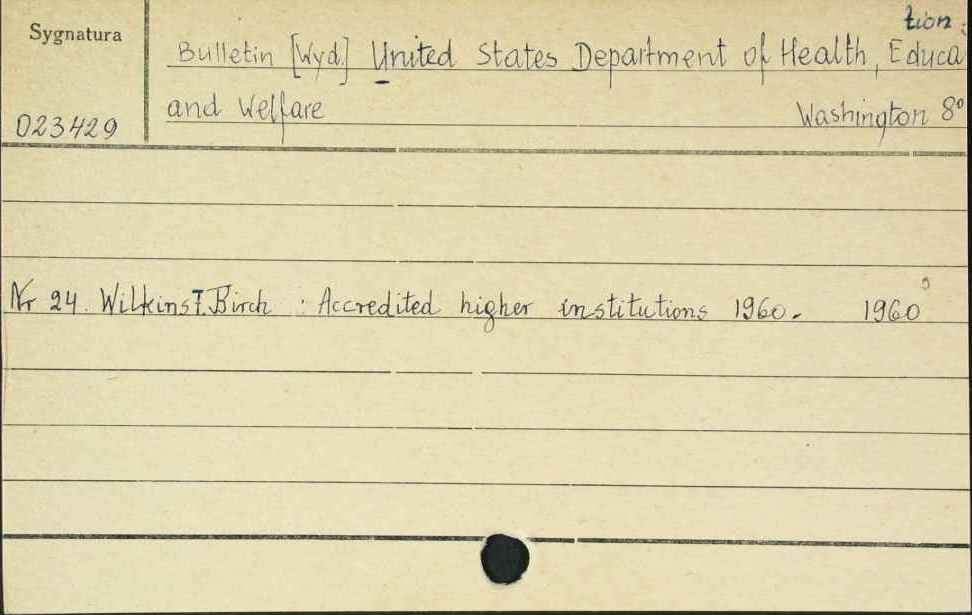 Sygnatura
Bulletin [Wyd.] United States Department of Health, Educa
tion
023429
and Welfare Washington 8°
Nr 24. Wilkins T. Birch : Accredited higher institutions 1960. 1960